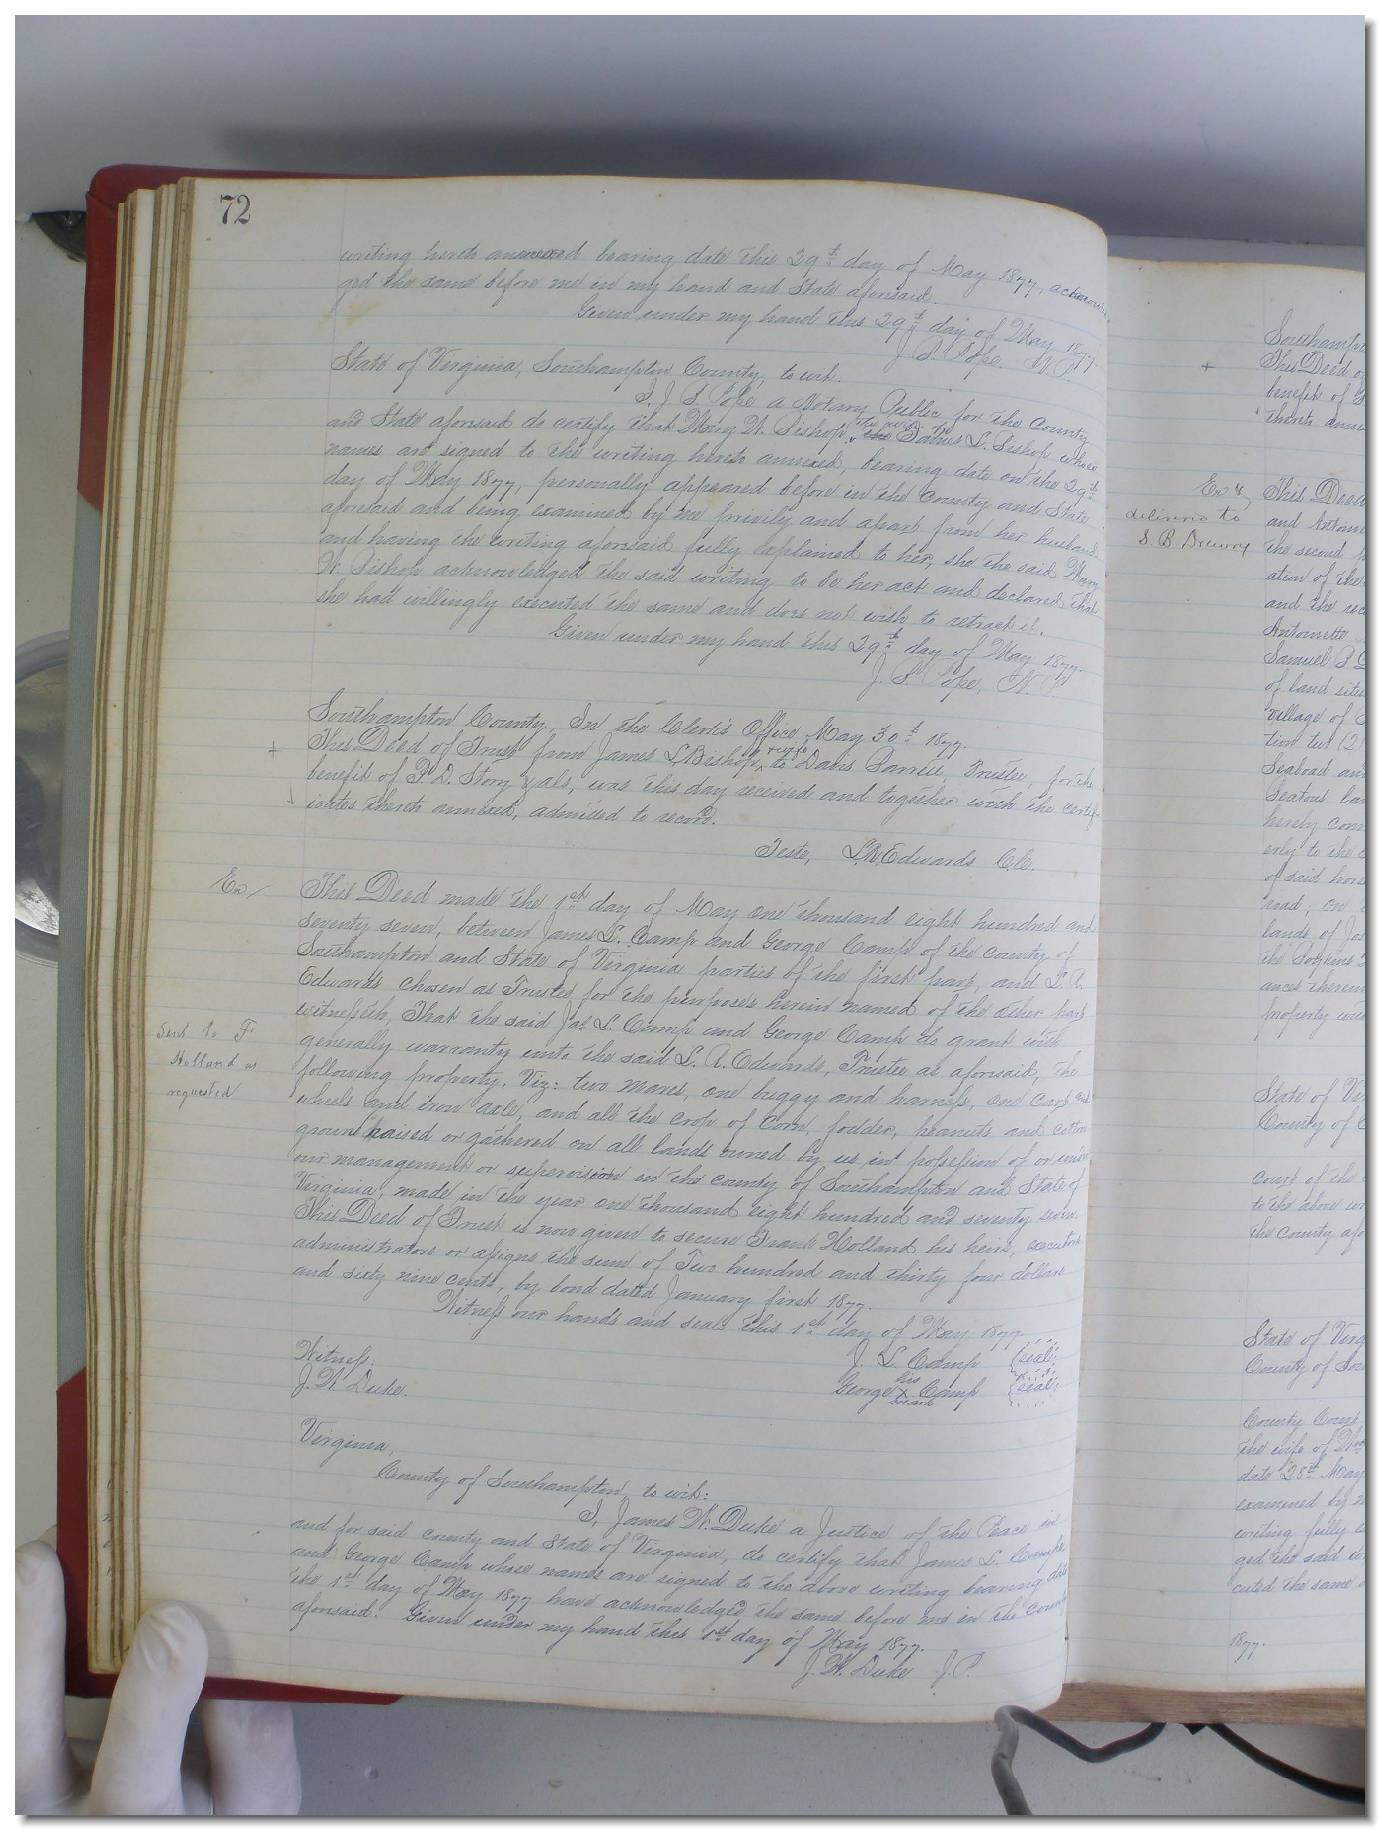 72
writing hereto annexed bearing date this 29th day of May 1877, acknowled
ged the same before me in my hand and State aforesaid.
Given under my hand this 29th day of May 1877.
J. S. Pope. N. P.
State of Virginia, Southampton County, to wit.
I, J. S. Pope a Notary Public for the County
and State aforesaid do certify that Mary W. Bishop, the wife of James L. Bishop whose
names are signed to the writing hereto annexed, bearing date on the 29th
day of May 1877, personally appeared before in the County and State
aforesaid and being examined by me privily and apart from her husband
and having the writing aforesaid fully explained to her, she the said Mary
W. Bishop acknowledged the said writing to be her act and declared that
she had willingly executed the same and does not wish to retract it.
Given under my hand this 29th day of May 1877.
J. S. Pope, N. P.
Southampton County, In the Clerk's Office May 30th 1877.
+ This Deed of Trust from James L. Bishop, & wife to Davis Barrett, Trustee, for the
benefit of P. D. Story & als, was this day received and together with the certif-
icates thereto annexed, admitted to record.
Teste, L. R. Edwards C.C.
Ex/ This Deed made the 1st day of May one thousand eight hundred and
seventy seven, between James L. Camp and George Camp of the county of
Southampton and State of Virginia parties of the first part, and L. R.
Edwards chosen as Trustee for the purposes herein named of the other part
witnesseth, That the said Jas. L. Camp and George Camp do grant with
generally warranty unto the said L. R. Edwards, Trustee as aforesaid, the
Sent to F
Holland as
requested
following property. Viz: two mares, one buggy and harness, one cart and
wheels and iron axle, and all the crop of corn, fodder, peanuts and cotton
grown raised or gathered on all lands owned by us, in possession of or under
our management or supervision in the county of Southampton and State of
Virginia, made in the year one thousand eight hundred and seventy seven.
This Deed of Trust is now given to secure Frank Holland his heirs, executors
administrators or assigns the sum of Two hundred and thirty four dollars
and sixty nine cents, by bond dated January first 1877.
Witness our hands and seals this 1st day of May 1877.
Witness. J. L. Camp {seal}
J. W. Duke. George his X mark Camp {seal}
Virginia,
County of Southampton, to wit:
I, James W. Duke a Justice of the Peace in
and for said county and State of Virginia, do certify that James L. Camp
and George Camp whose names are signed to the above writing bearing date
the 1st day of May 1877 have acknowledged the same before me in the county
aforesaid. Given under my hand this 1st day of May 1877.
J. W. Duke J.P.
Southampto
+ This Deed o
benefit of
thereto anne
Ex'd,
delivered to
S. B. Drewry
This Deed
and Antoin
the second p
ation of the
and the rec
Antoinette
Samuel B D
of land situ
village of
tion two (2)
Seaboad an
Seatons lan
hereby conv
erly to the
of said hou
road, on
lands of Jos
the
ances therein
property wi
State of Vi
County of
court of the
to the above wr
the County afo
State of Virg
County of Sou
County Court
the wife of
date 28th May
examined by m
writing fully e
ged the said w
cuted the same
1877.